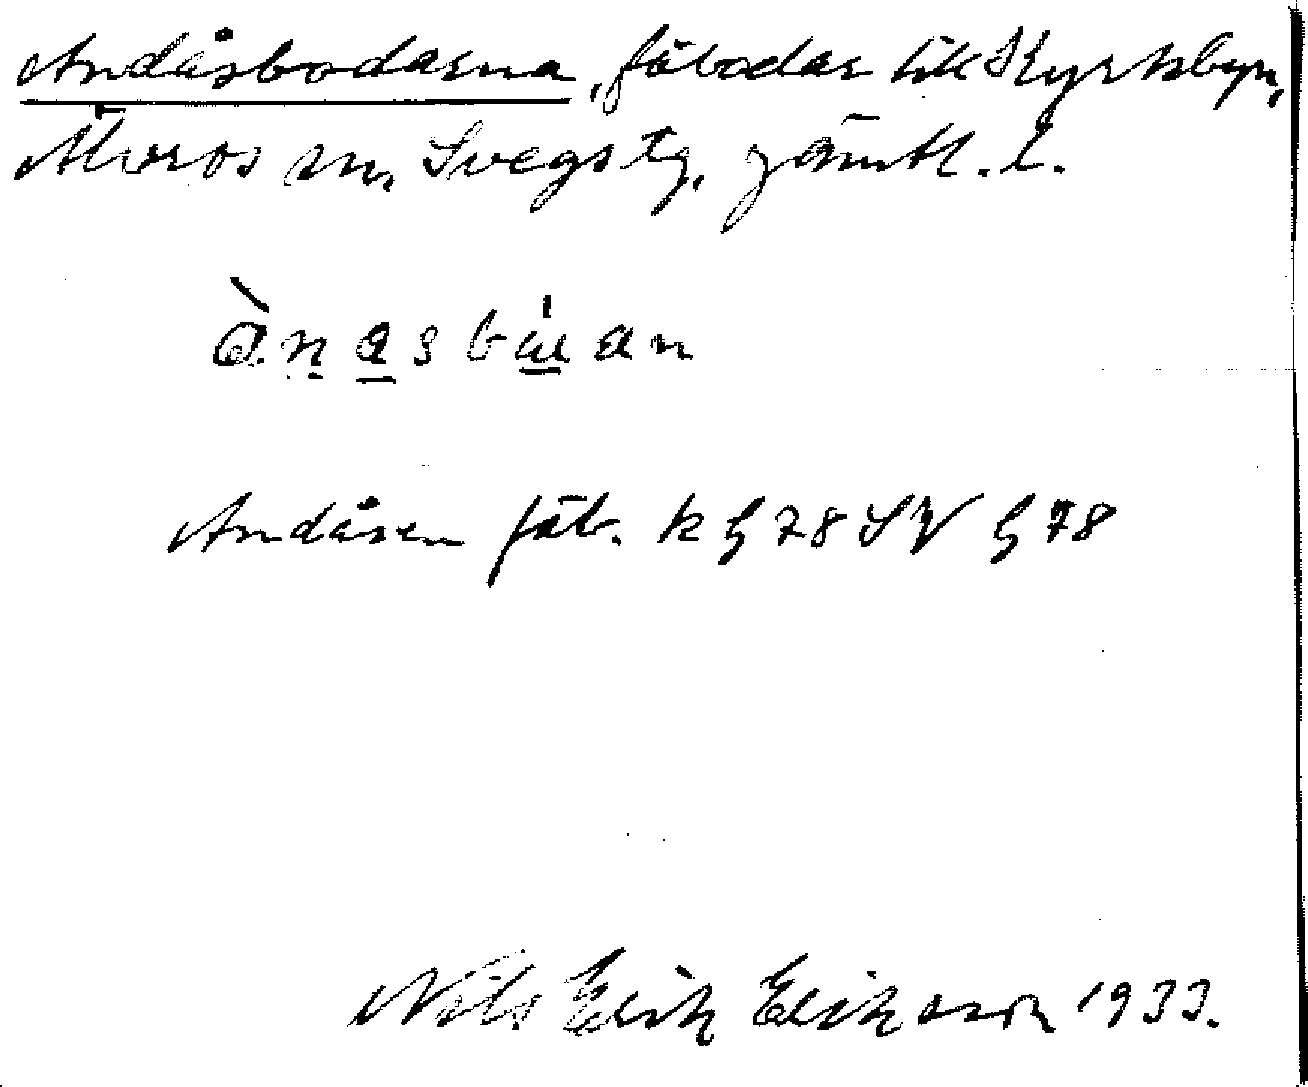 Andåsbodarna, fäbodar till Kyrkbyn,
Älvros sn, Svegs tg, Jämtl. l.
Andåsen fäb. k G 78 SV G 78
Nils Erik Eriksson 1933.